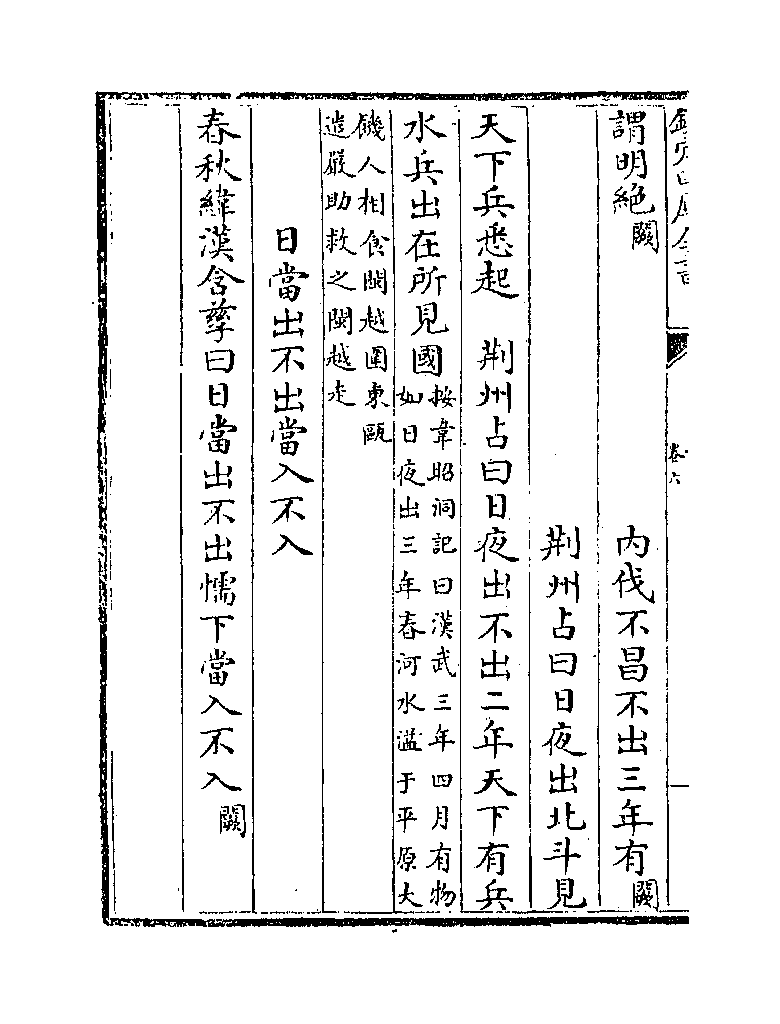 欽定四庫全書
卷六
謂明絶闕 內伐不昌不出三年有闕
荆州占曰日夜出北斗見
天下兵悉起 荆州占曰日夜出不出二年天下有兵
水兵出在所見國按韋昭洞記曰漢武三年四月有物
如日夜出三年春河水溢于平原大
饑人相食閩越圍東甌
遣嚴助救之閩越走
日當出不出當入不入
春秋緯漢含孳曰日當出不出懦下當入不入闕